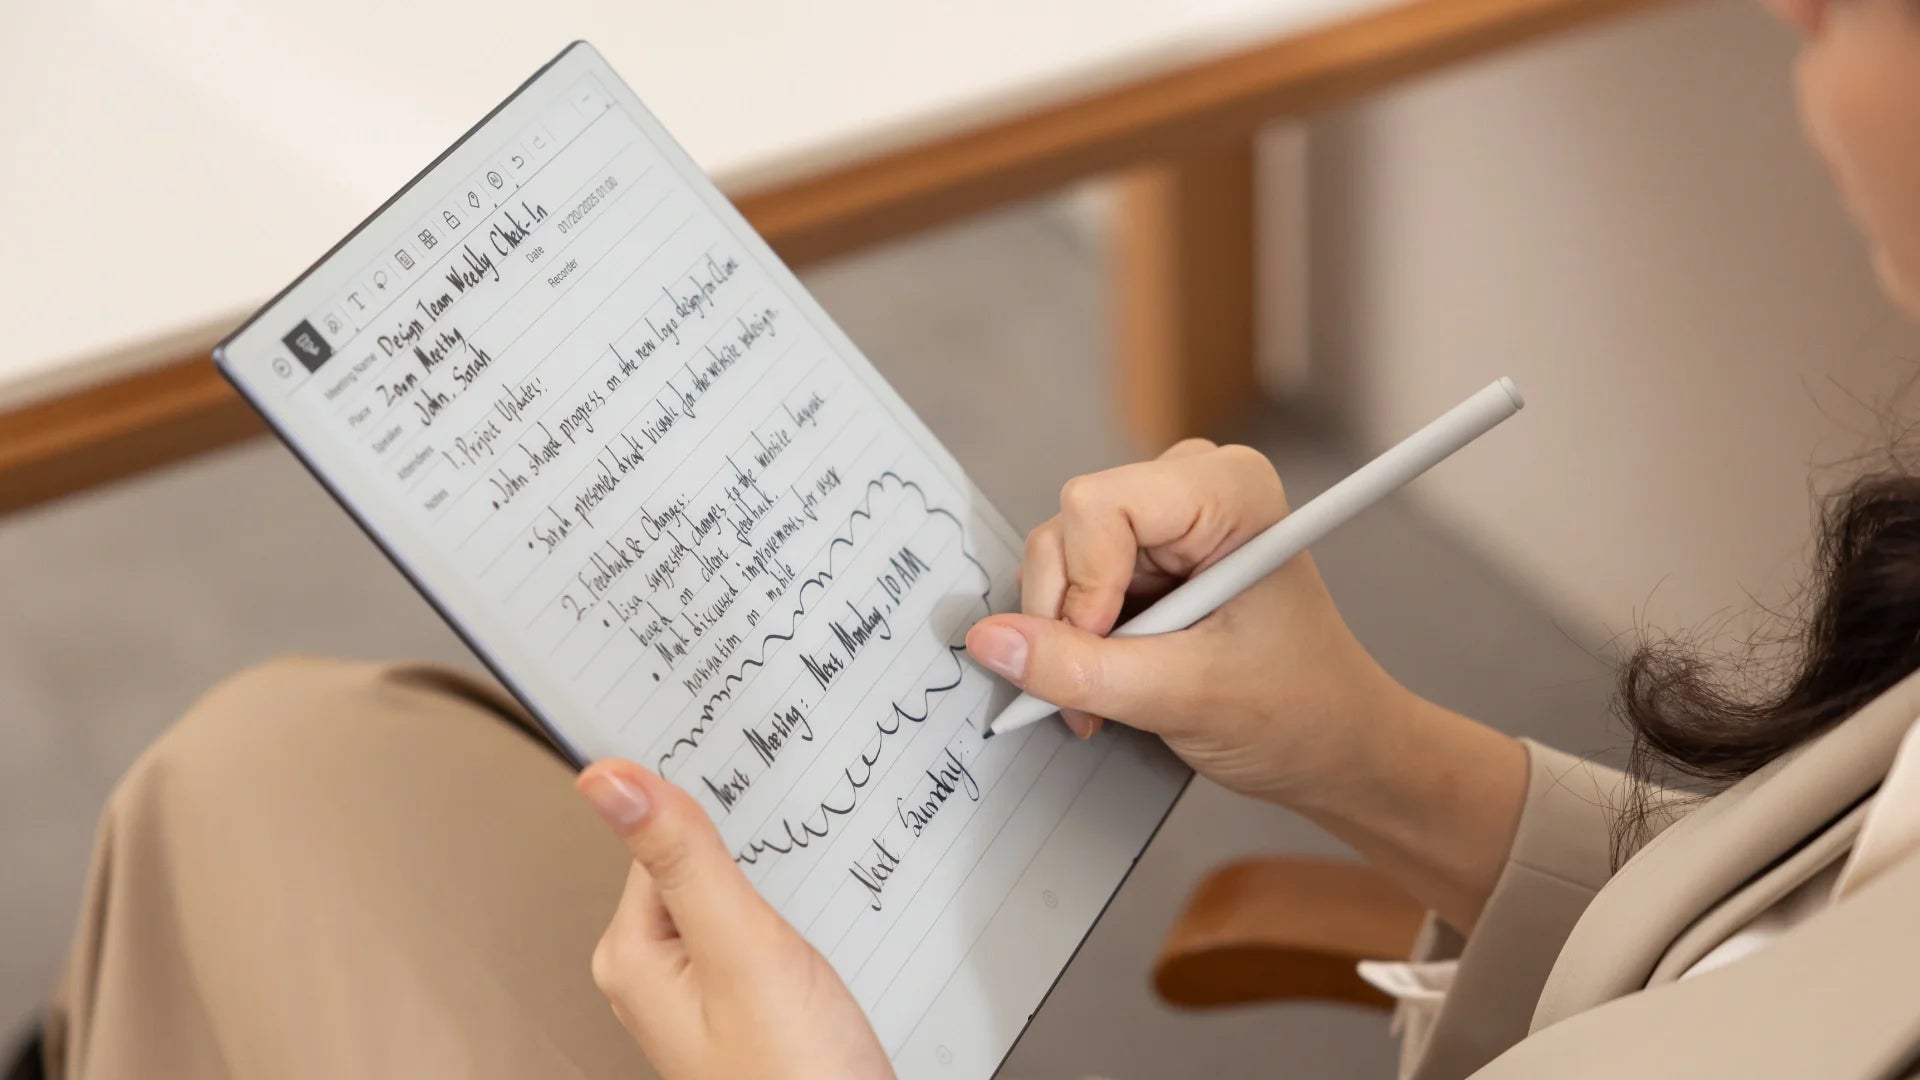 Meeting Name Design Team Weekly Check-In
Place Zoom Meeting Date 01/20/2025 01:00
Speaker John, Sarah Recorder
Attendees
Notes 1. Project Updates:
• John shared progress on the new logo design for Client
• Sarah presented draft visuals for the website redesign.
2. Feedback & Changes:
• Lisa suggested changes to the website layout
based on client feedback.
• Mark discussed improvements for user
navigation on mobile
Next Meeting: Next Monday, 10 AM
Next Sunday: